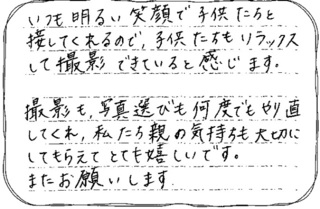 いつも明るい笑顔で子供たちと
接してくれるので、子供たちもリラックス
して撮影できていると感じます。
撮影も、写真選びも何度でもやり直
してくれ、私たち親の気持ちも大切に
してもらえてとても嬉しいです。
またお願いします